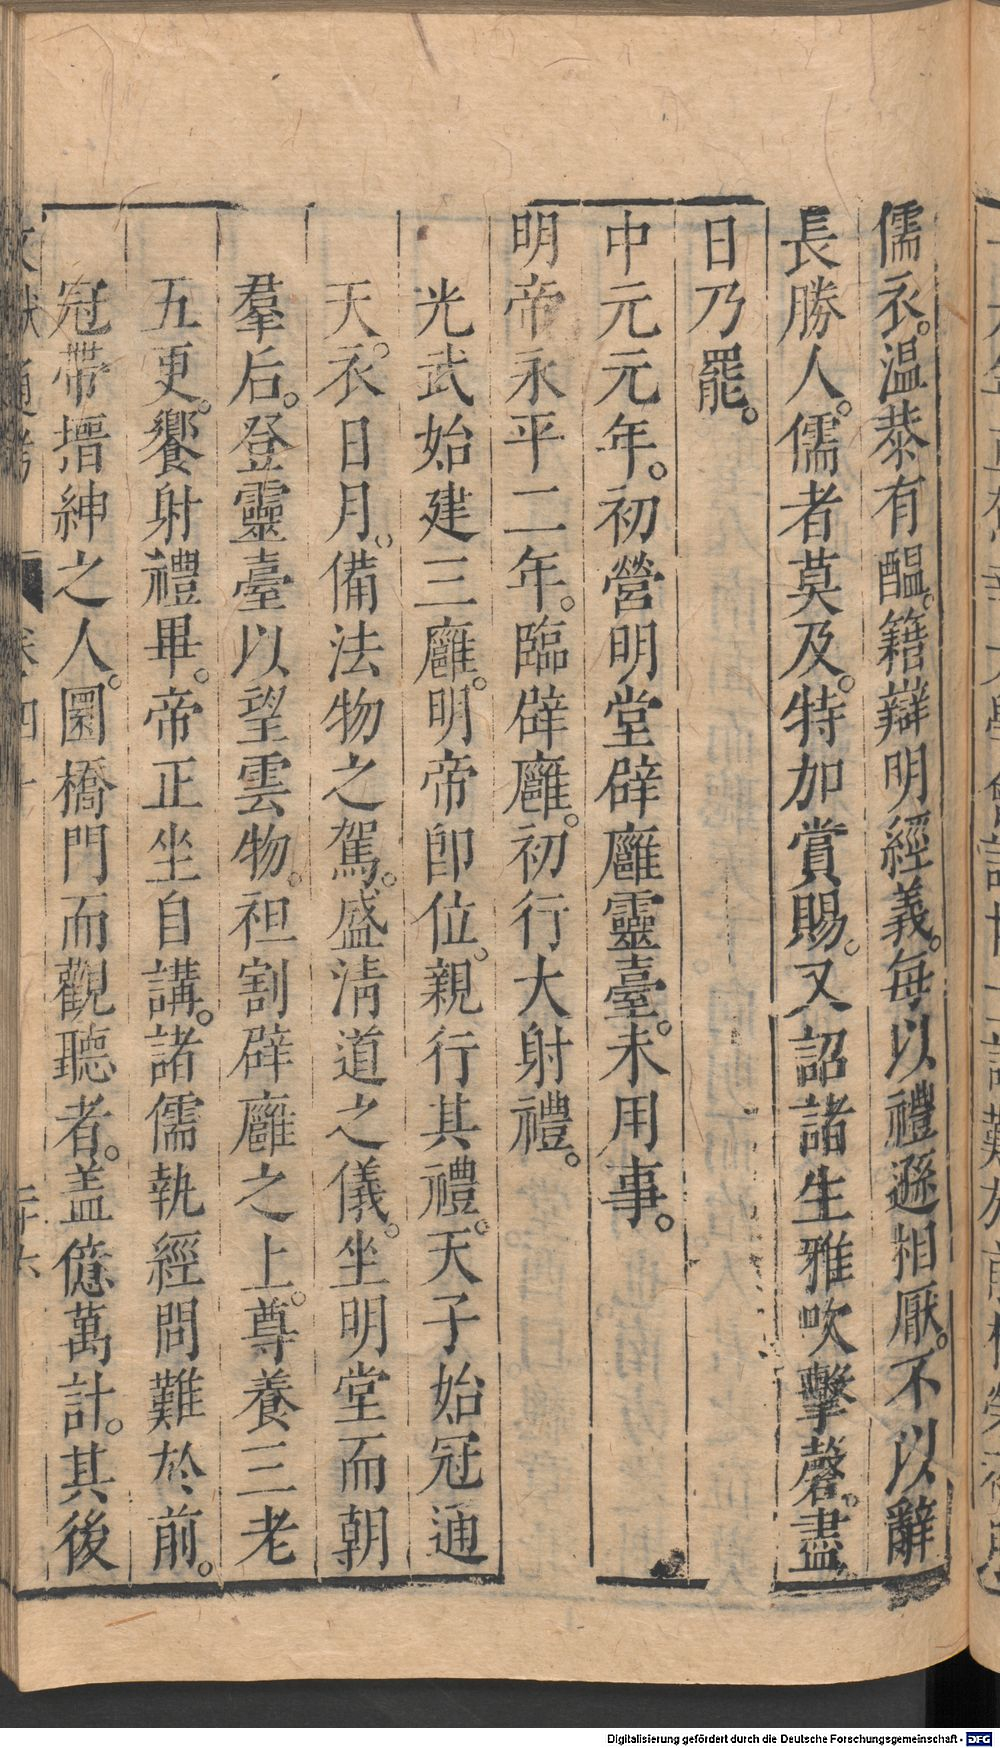 儒衣。温恭有醞籍辯明經義。每以禮遜相厭。不以辭
長勝人。儒者莫及。特加賞賜。又詔諸生雅吹擊磬。盡
日乃罷。
中元元年。初營明堂辟廱靈臺。未用事。
明帝永平二年。臨辟廱。初行大射禮。
光武始建三廱。明帝卽位。親行其禮。天子始冠通
天。衣日月。備法物之駕。盛淸道之儀。坐明堂而朝
羣后。登靈臺以望雲物。袒割辟廱之上。尊養三老
五更。饗射禮畢。帝正坐自講。諸儒執經問難於前。
冠帶搢紳之人。圜橋門而觀聽者。盖億萬計。其後
Digitalisierung gefördert durch die Deutsche Forschungsgemeinschaft - DFG